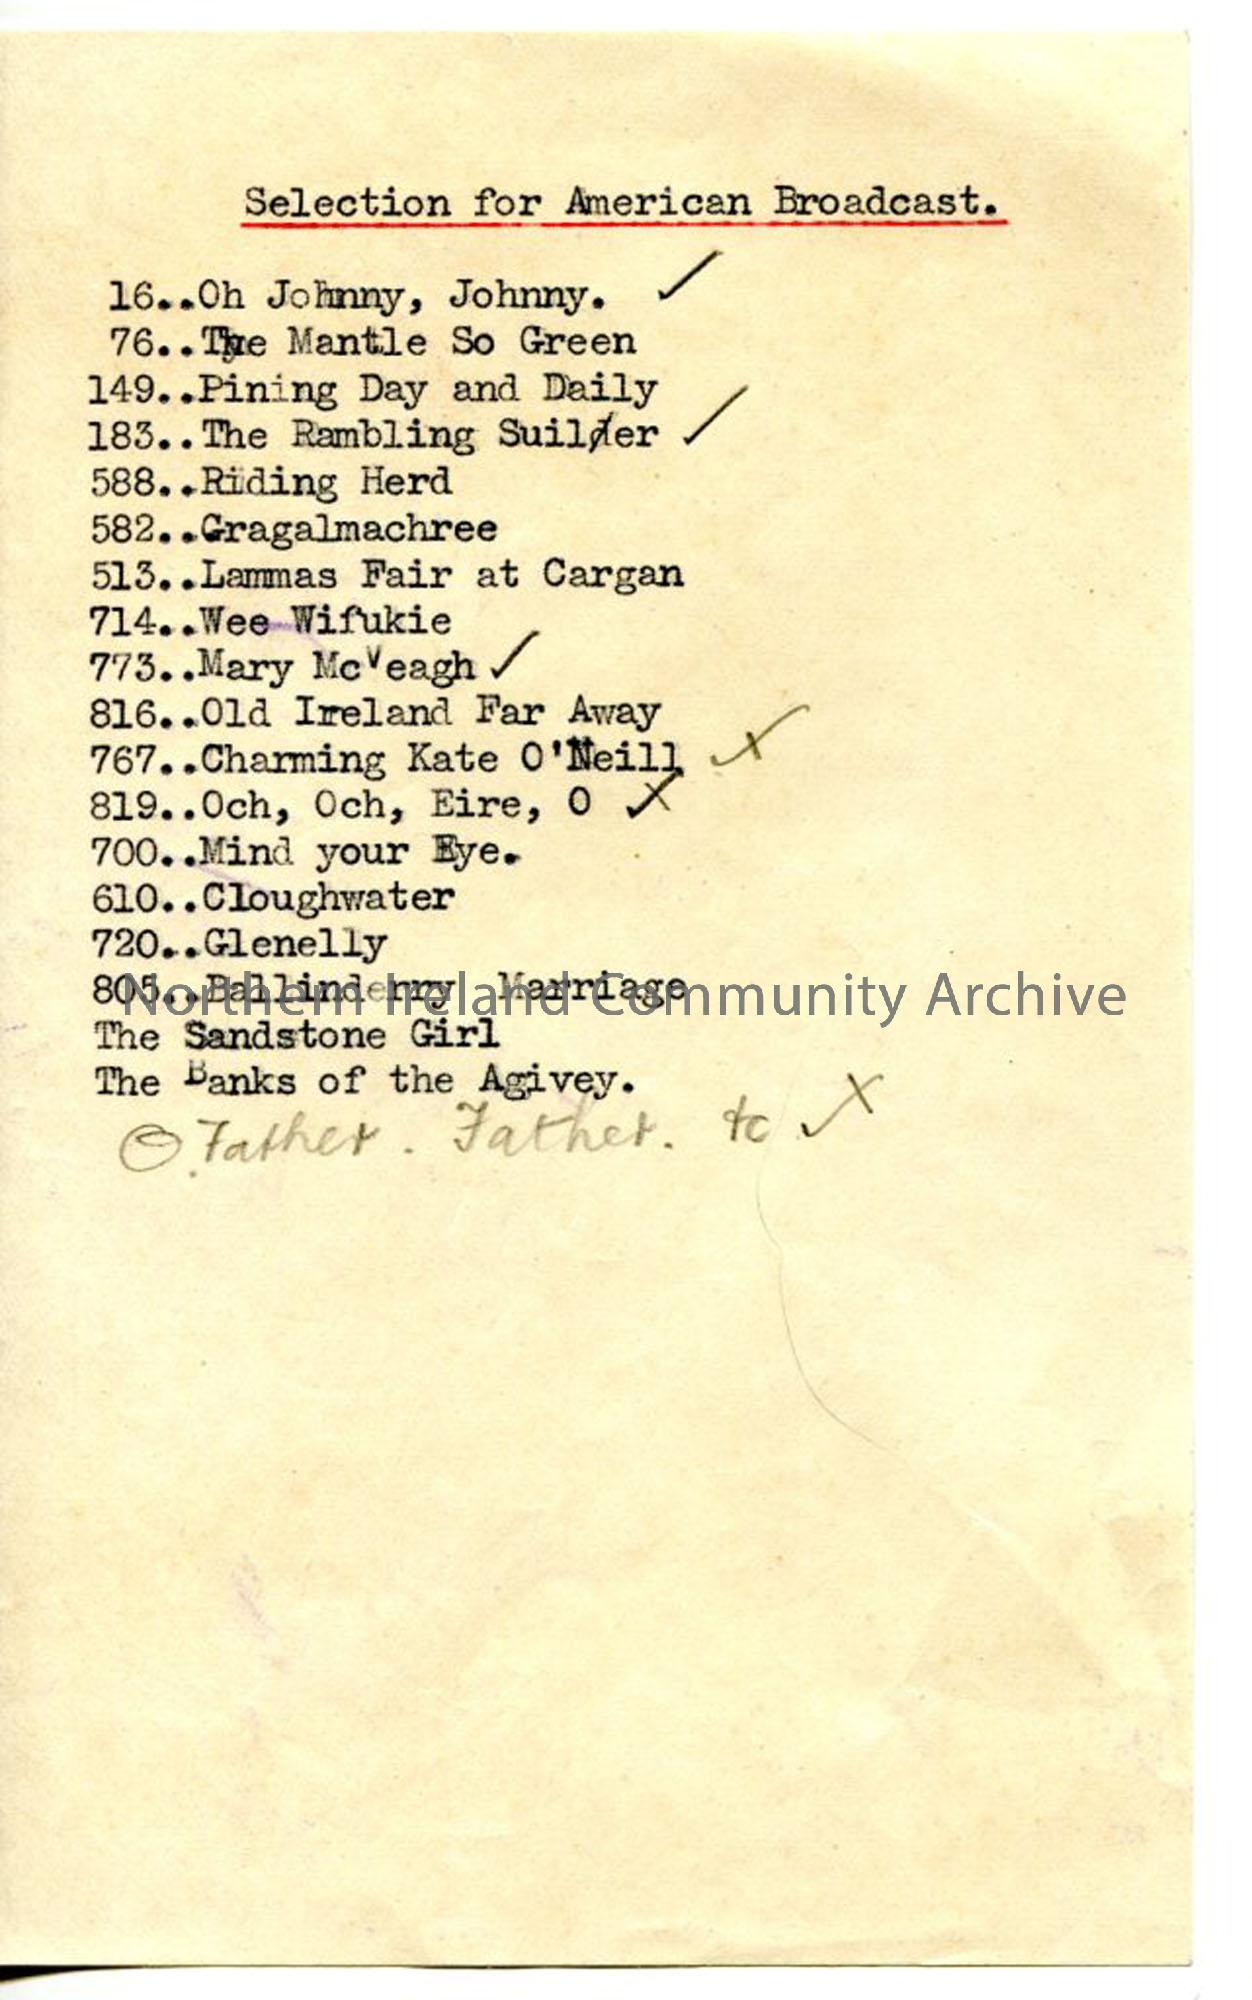 Selection for American Broadcast.
16..Oh Johnny, Johnny. ✓
76..The Mantle So Green
149..Pining Day and Daily
183..The Rambling Suiler ✓
588..Riding Herd
582..Gragalmachree
513..Lammas Fair at Cargan
714..Wee Wifukie
773..Mary McVeagh ✓
816..Old Ireland Far Away
767..Charming Kate O'Neill ✓
819..Och, Och, Eire, O ✓
700..Mind your Eye.
610..Cloughwater
720..Glenelly
805..Ballinderry Marriage
Northern Ireland Community Archive
The Sandstone Girl
The Banks of the Agivey.
O Father. Father. tc ✓